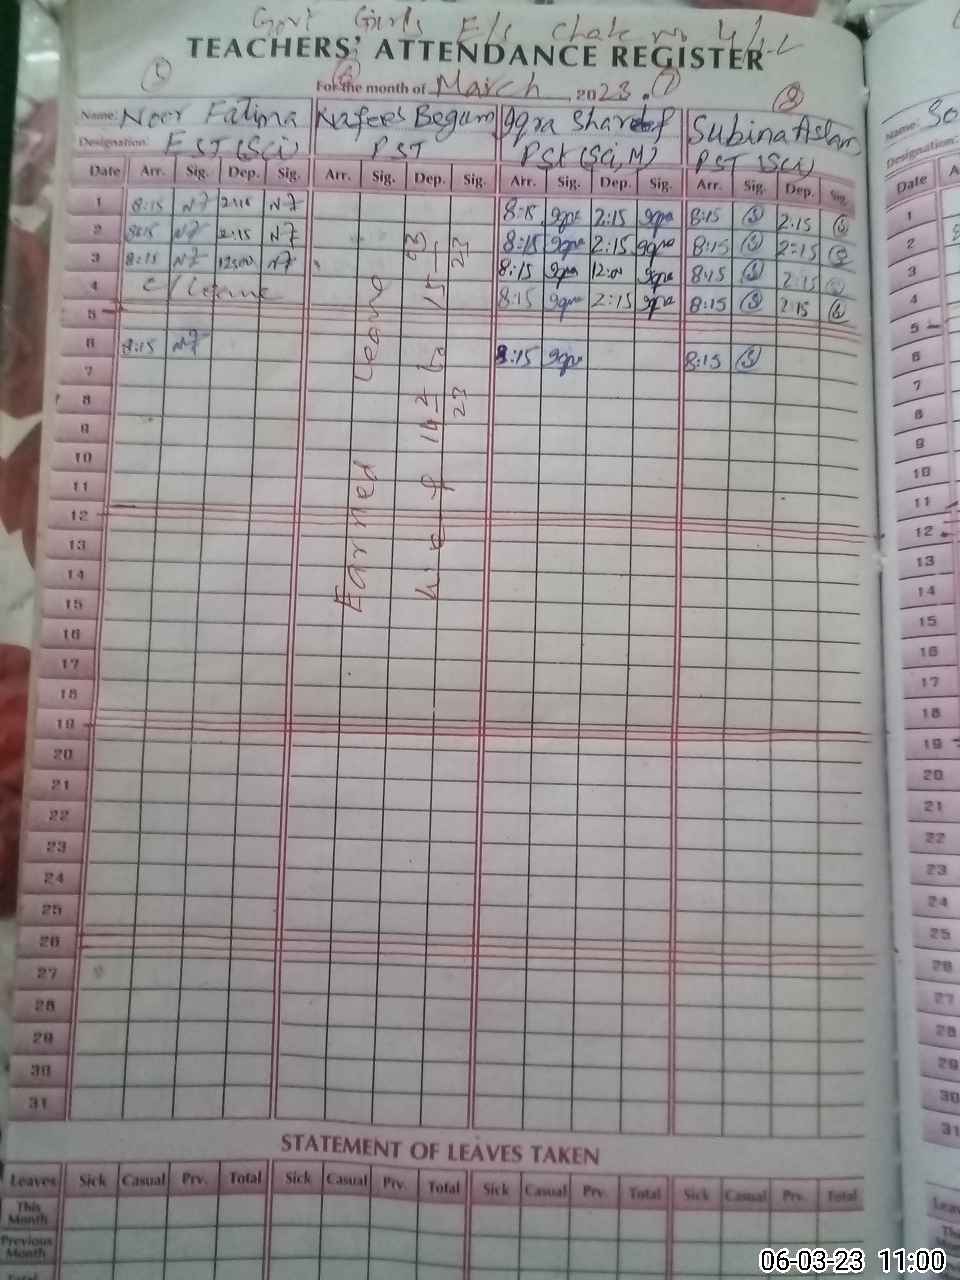 Govt Girls E/S Chak no 4/1-L
TEACHERS' ATTENDANCE REGISTER
For the month of March 2023.
Name: Noor Fatima Nafees Begum Iqra Shareef Subina Aslam
Designation: EST (Sci) PST PST (Sci, M) PST (Sci)
Date Arr. Sig. Dep. Sig. Arr. Sig. Dep. Sig. Arr. Sig. Dep. Sig. Arr. Sig. Dep. Sig.
1 8:15 NF 2:15 NF 8:15 Iqra 2:15 Iqra 8:15 S 2:15 S
2 8:15 NF 2:15 NF 8:15 Iqra 2:15 Iqra 8:15 S 2:15 S
3 8:15 NF 12:00 NF 8:15 Iqra 12:00 Iqra 8:15 S 2:15 S
4 C/Leave 8:15 Iqra 2:15 Iqra 8:15 S 2:15 S
5
6 8:15 NF 8:15 Iqra 8:15 S
7
8
9
10
11
12
13
14
15
16
17
18
19
20
21
22
23
24
25
26
27
28
29
30
31
Earned Leave
w.e.f 14-2-23 to 15-3-23
STATEMENT OF LEAVES TAKEN
Leaves Sick Casual Prv. Total Sick Casual Prv. Total Sick Casual Prv. Total Sick Casual Prv. Total
This Month
Previous Month
Total
Name: So
Designation:
Date A
1
2
3
4
5
6
7
8
9
10
11
12
13
14
15
16
17
18
19
20
21
22
23
24
25
26
27
28
29
30
31
06-03-23 11:00